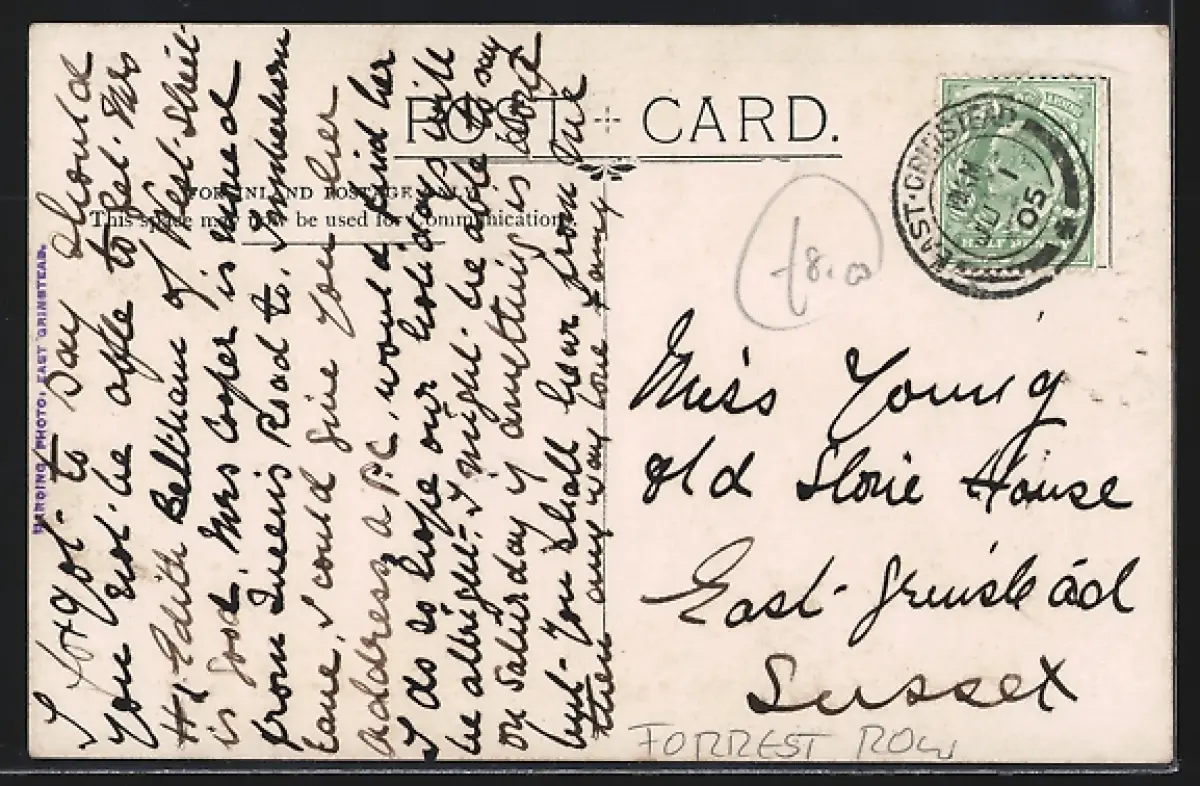 POST CARD.
FOR INLAND POSTAGE ONLY
This space may now be used for Communications.
HARDING, PHOTO, EAST GRINSTEAD.
EAST·GRINSTEAD
JU 1
05
HALF PENNY
I forgot to say should
you not be able to get Mrs
H, Edith Beltcham of West Street
is good. Mrs Cooper is moved
from Queens Road to
Lane, I could give you her
address, a P.C. would find her
I do so hope our holidays will
be allright. I might be able to say
on Saturday if anything is done
but You shall hear from me
then any way love Fanny
Miss Young
Old Stone House
East Grinstead
Sussex
FORREST ROW